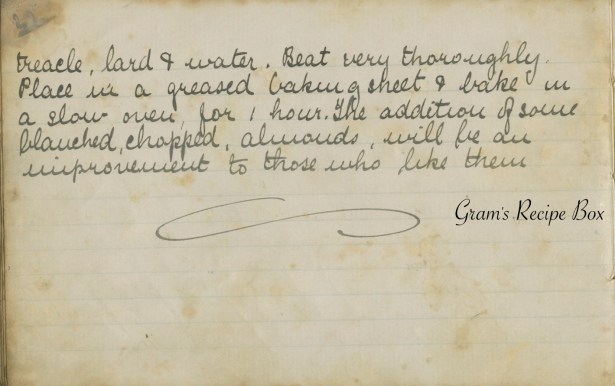 treacle, lard & water. Beat very thoroughly.
Place in a greased baking sheet & bake in
a slow oven, for 1 hour. The addition of some
blanched, chopped, almonds, will be an
improvement to those who like them
Gram's Recipe Box